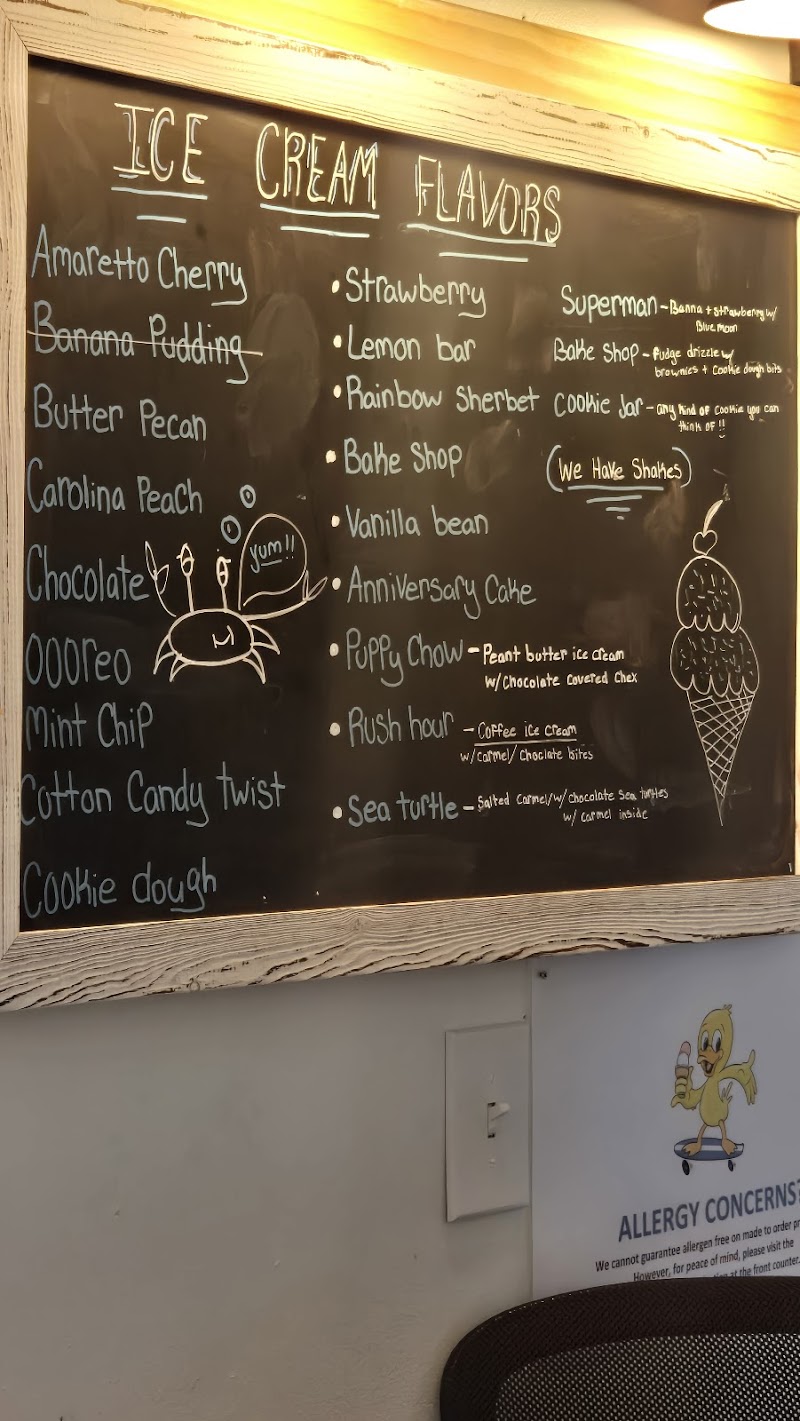 ICE CREAM FLAVORS
Amaretto Cherry
Banana Pudding
Butter Pecan
Carolina Peach
Chocolate
OOOreo
Mint Chip
Cotton Candy Twist
Cookie dough
yum!!
• Strawberry
• Lemon bar
• Rainbow Sherbet
• Bake Shop
• Vanilla bean
• Anniversary Cake
• Puppy Chow - Peant butter ice cream
w/chocolate covered chex
• Rush hour - Coffee ice cream
w/carmel/choclate bites
• Sea turtle - Salted Carmel/w/chocolate Sea turtles
w/ carmel inside
Superman - Banna + strawberry w/
Blue moon
Bake Shop - fudge drizzle w/
brownies + cookie dough bits
Cookie Jar - any kind of cookie you can
think of!!
(We Have Shakes)
ALLERGY CONCERNS?
We cannot guarantee allergen free on made to order
However, for peace of mind, please visit the
at the front counter.